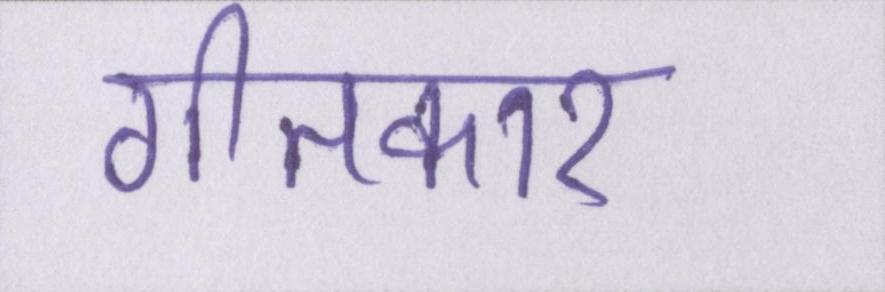 गीतकार